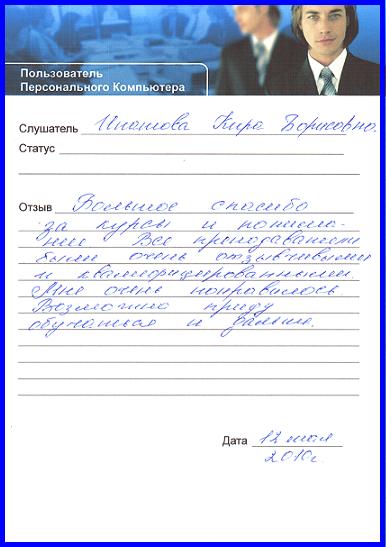 Пользователь
Персонального Компьютера
Слушатель Ипатова Кира Борисовна.
Статус
Отзыв Большое спасибо
за курсы и понима-
ние Все преподаватели
были очень отзывчивыми
и квалифицированными.
Мне очень понравилось
Возможно приду
обучаться и дальше.
Дата 12 мая
2010г.